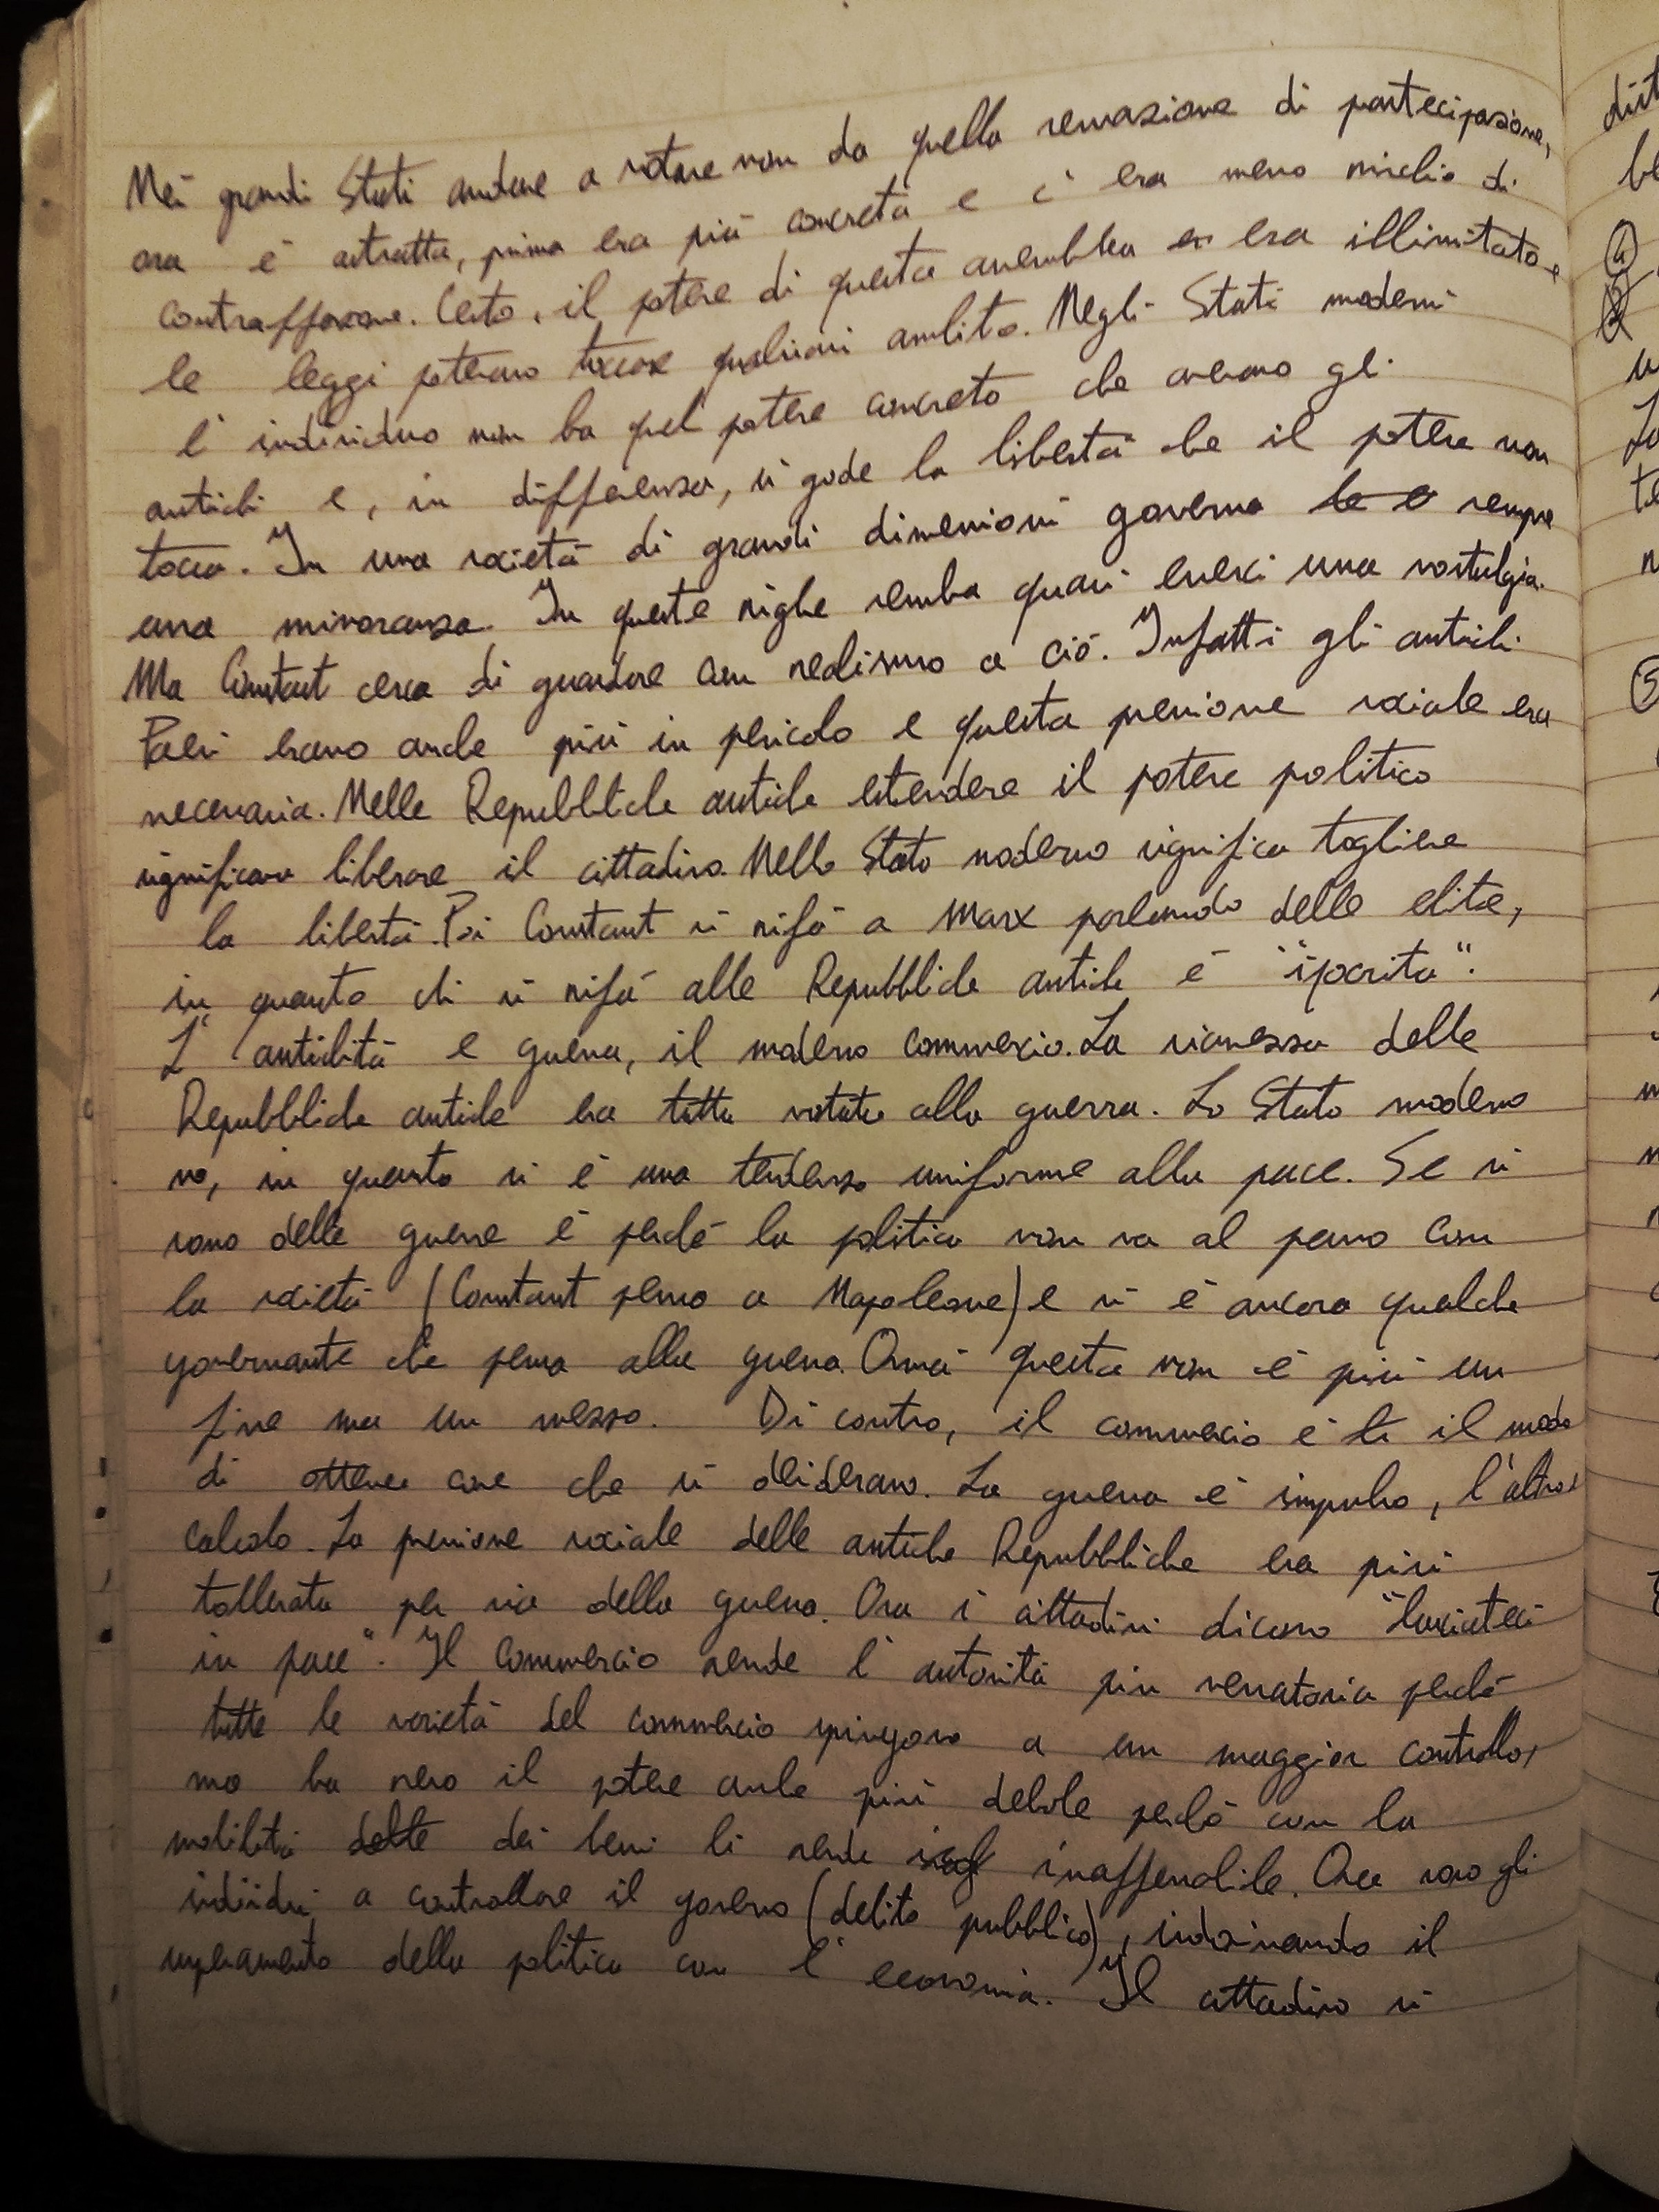 Nei grandi Stati andare a votare non da quella sensazione di partecipazione,
ora è astratta, prima era più concreta e c'era meno rischio di
contraffazione. Certo, il potere di questa assemblea era illimitato e
le leggi potevano toccare qualsiasi ambito. Negli Stati moderni
l'individuo non ha quel potere concreto che avevano gli
antichi e, in differenza, si gode la libertà che il potere non
tocca. In una società di grandi dimensioni governa sempre
una minoranza. In queste righe sembra quasi esserci una nostalgia.
Ma Constant cerca di guardare con realismo a ciò. Infatti gli antichi
Paesi erano anche più in pericolo e questa pressione sociale era
necessaria. Nelle Repubbliche antiche estendere il potere politico
significava liberare il cittadino. Nello Stato moderno significa togliere
la libertà. Poi Constant si rifà a Marx parlando delle elite,
in quanto chi si rifà alle Repubbliche antiche è "ipocrita".
L'antichità e guerra, il moderno commercio. La ricchezza delle
Repubbliche antiche era tutta votata alla guerra. Lo Stato moderno
no, in quanto vi è una tendenza uniforme alla pace. Se vi
sono delle guerre è perché la politica non va al passo con
la società (Constant pensa a Napoleone) e vi è ancora qualche
governante che pensa alla guerra. Ormai questa non è più un
fine ma un mezzo. Di contro, il commercio è il modo
di ottenere cose che si desiderano. La guerra è impulso, l'altro
calcolo. La pressione sociale delle antiche Repubbliche era più
tollerata per via della guerra. Ora i cittadini dicono "lasciateci
in pace". Il commercio rende l'autorità più vessatoria perché
tutte le varietà del commercio spingono a un maggior controllo,
ma ha reso il potere anche più debole perché con la
mobilità dei beni li rende inafferrabile. Ora sono gli
individui a controllare il governo (debito pubblico), indovinando il
superamento della politica con l'economia. Il cittadino si